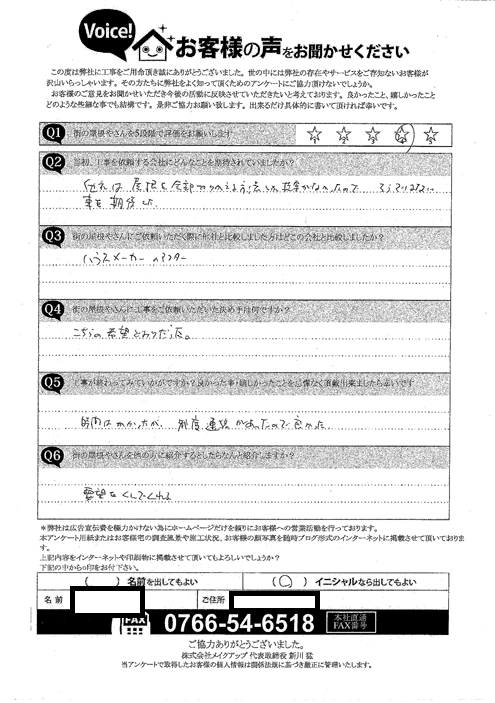 Voice!
お客様の声をお聞かせください
この度は弊社に工事をご用命頂き誠にありがとうございました。世の中には弊社の存在やサービスをご存知ないお客様が
沢山いらっしゃいます。その方たちに弊社をよく知って頂くためのアンケートにご協力頂けないでしょうか。
お客様のご意見をお聞かせいただき今後の活動に反映させていただきたいと考えております。良かったこと、嬉しかったこと
どのような些細な事でも結構です。是非ご協力お願い致します。出来るだけ具体的に書いて頂ければ幸いです。
Q1 街の屋根やさんを5段階で評価をお願いします
1 2 3 4 5
Q2 当初、工事を依頼する会社にどんなことを期待されていましたか?
事を期待した
Q3 街の屋根やさんにご依頼いただく際に他社と比較しました方はどこの会社と比較しましたか?
ハウスメーカー
Q4 街の屋根やさんに工事をご依頼いただいた決め手は何ですか?
こちらの希望
Q5 工事が終わってみていかがですか?良かった事・嬉しかったことを忌憚なく頂戴出来ましたら幸いです
時間はかかったが、都度連絡があったので良かった
Q6 街の屋根やさんを他の方に紹介するとしたらなんと紹介しますか?
*弊社は広告宣伝費を極力かけない為にホームページだけを頼りにお客様への営業活動を行っております。
本アンケート用紙またはお客様宅の調査風景や施工状況、お客様の顔写真を随時ブログ形式のインターネットに掲載させて頂いておりま
す。
上記内容をインターネットや印刷物に掲載させて頂いてもよろしいでしょうか?
下記の中から○印をお付下さい。
( ) 名前を出してもよい (○) イニシャルなら出してもよい
名前 ご住所
FAX 0766-54-6518 本社直通 FAX番号
ご協力ありがとうございました。
株式会社メイクアップ 代表取締役 新川 猛
当アンケートで取得したお客様の個人情報は関係法規に基づき厳正に管理いたします。